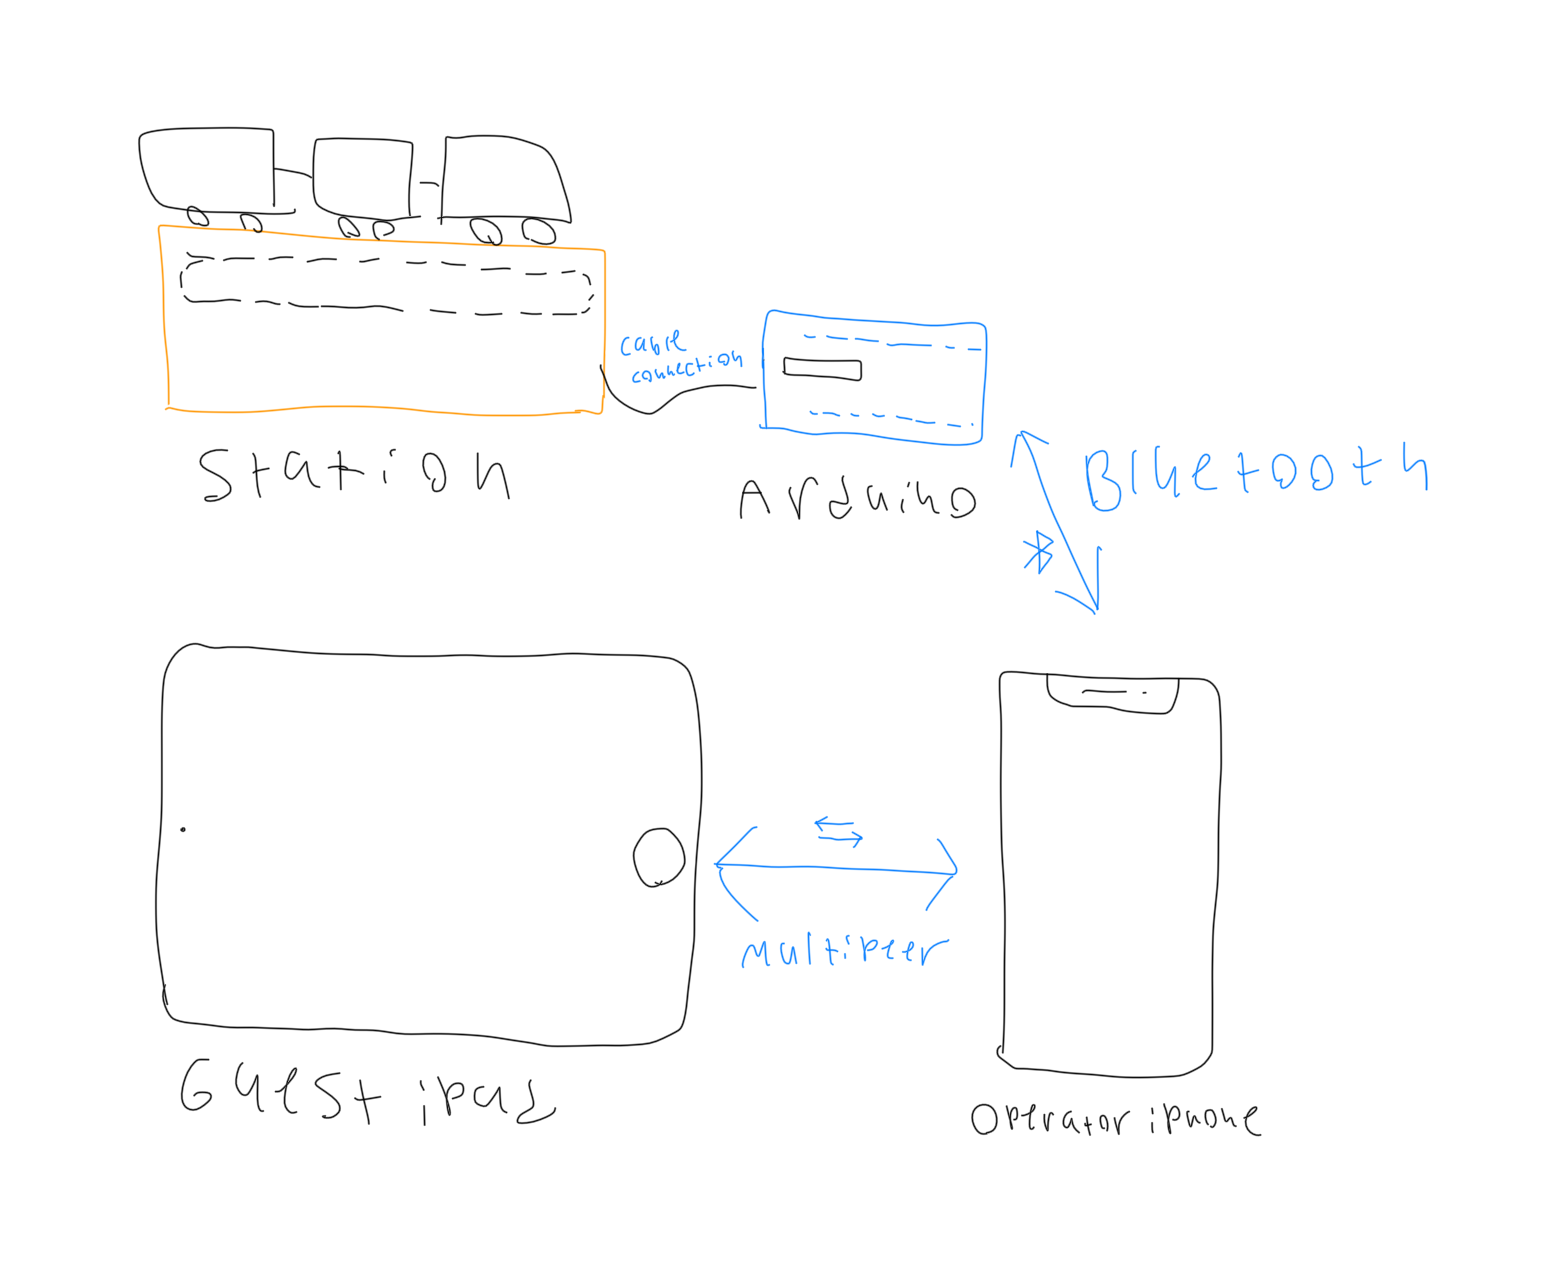 cable
connection
Station
Arduino
Bluetooth
multipeer
Guest ipad
Operator iphone